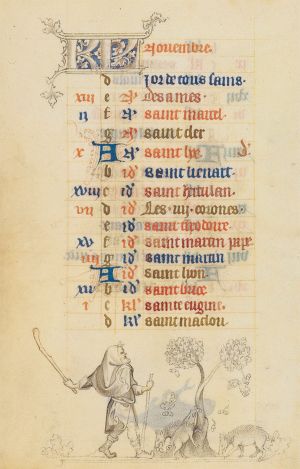 KL Novembre.
d Jor de tous sains.
xiii e Les ames.
ii f saint marcel
g saint cler
x A saint lie
b id' saint lienart.
xviii c id'
vii d id' Les .iiij. corones
e id' saint theodoire.
xv f id' saint martin pape.
iiii g id' saint martin
A id' saint lion.
xii b id' saint brice
i c kl' sainte eugine.
d kl' saint maclou.